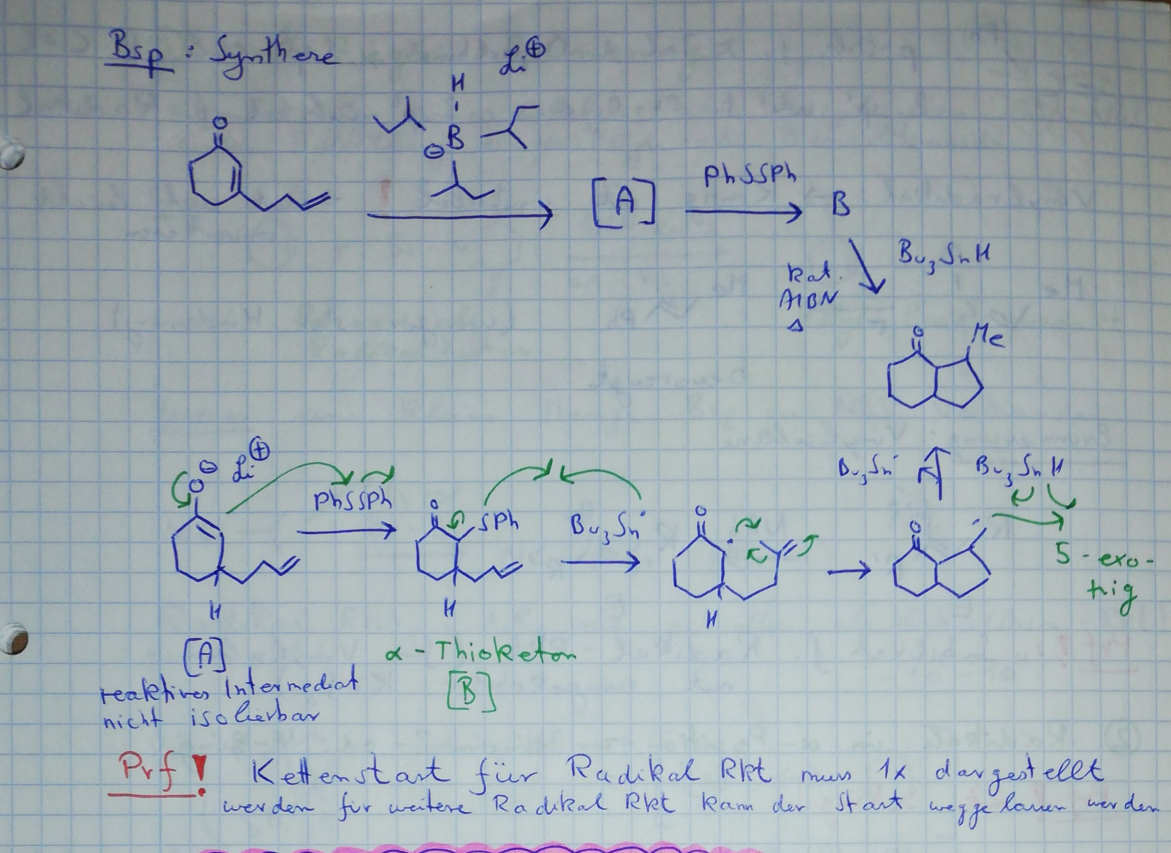 Bsp : Synthese
Li⊕
H
O
⊖ B
PhSSPh
[A]
B
Bu₃SnH
kat.
AIBN
Δ
O
Me
⊖ Li⊕
O
PhSSPh
O
SPh
Bu₃Sn·
O
Bu₃Sn·
Bu₃SnH
O
5-exo-
trig
H
H
H
[A]
α - Thioketon
[B]
reaktives Intermediat
nicht isolierbar
Prf! Kettenstart für Radikal Rkt muss 1x dargestellt
werden für weitere Radikal Rkt kann der Start weggelassen werden